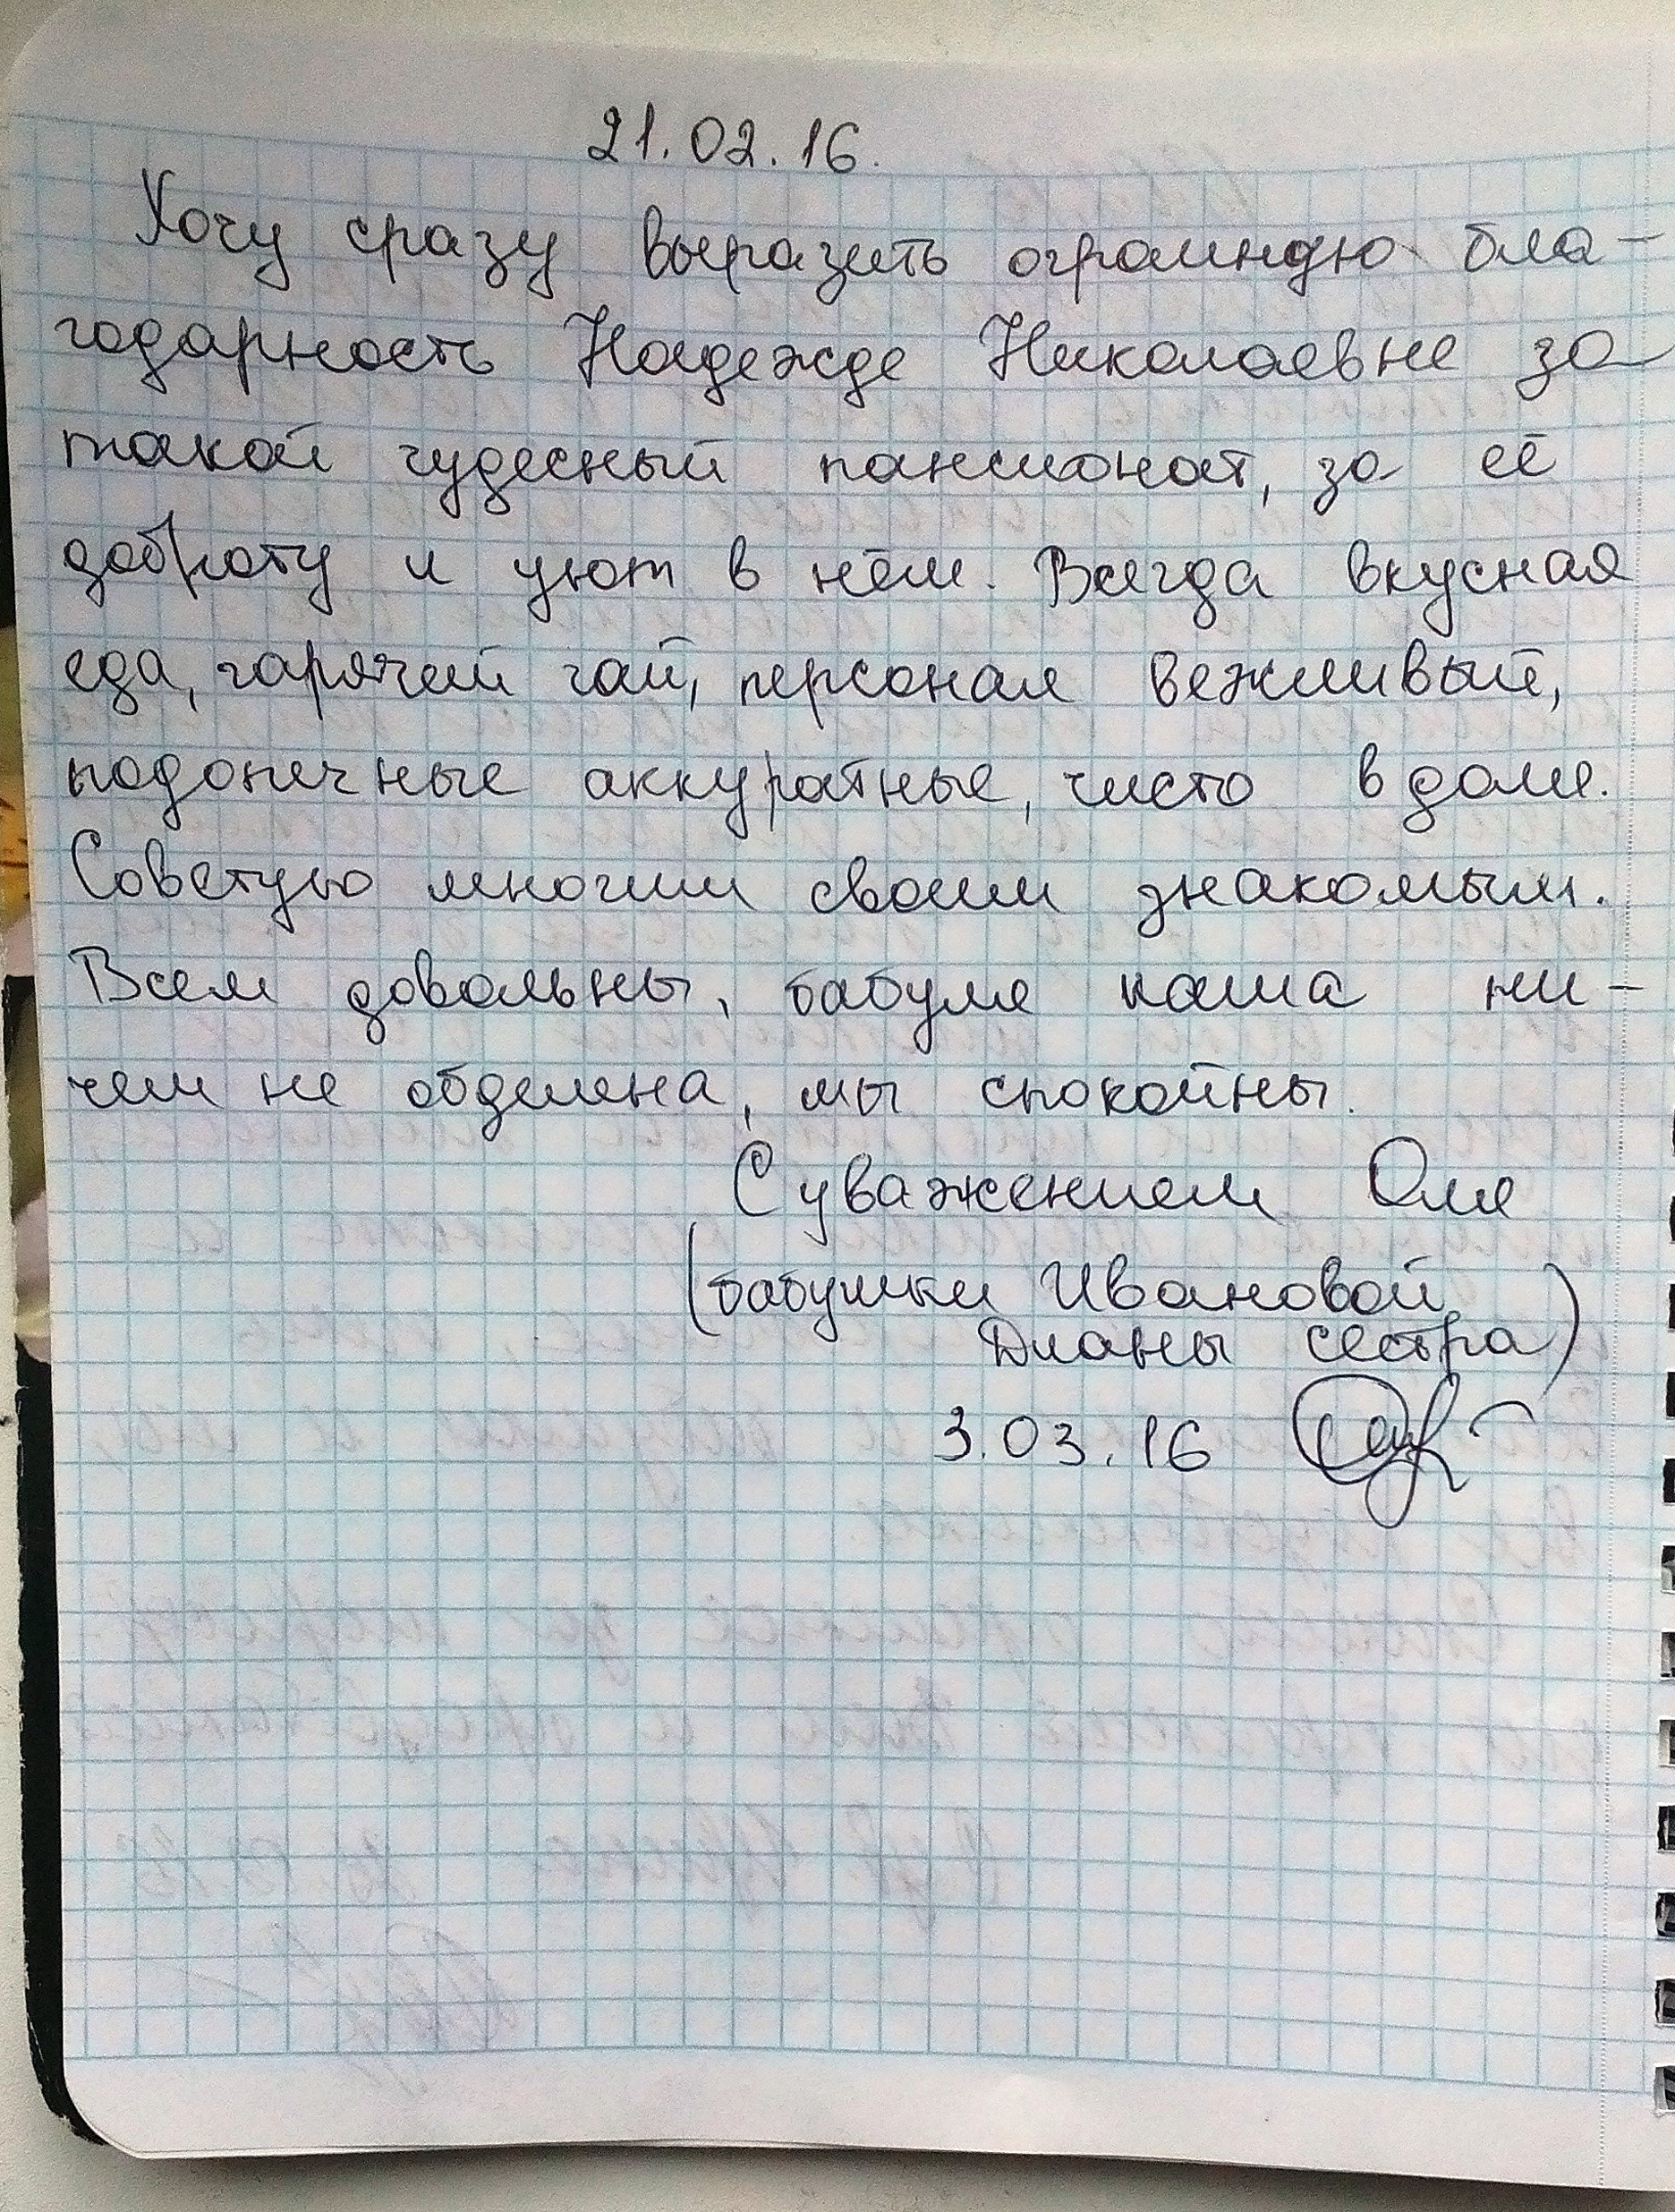 21.02.16.
Хочу сразу выразить огромную бла-
годарность Надежде Николаевне за
такой чудесный пансионат, за её
доброту и уют в нём. Всегда вкусная
еда, гарячий чай, персонал вежливый,
подопечные аккуратные, чисто в доме.
Советую многим своим знакомым.
Всем довольны, бабуля наша ни-
чем не обделена, мы спокойны.
С уважением Оля
(бабушки Ивановой
Дианы сестра)
3.03.16